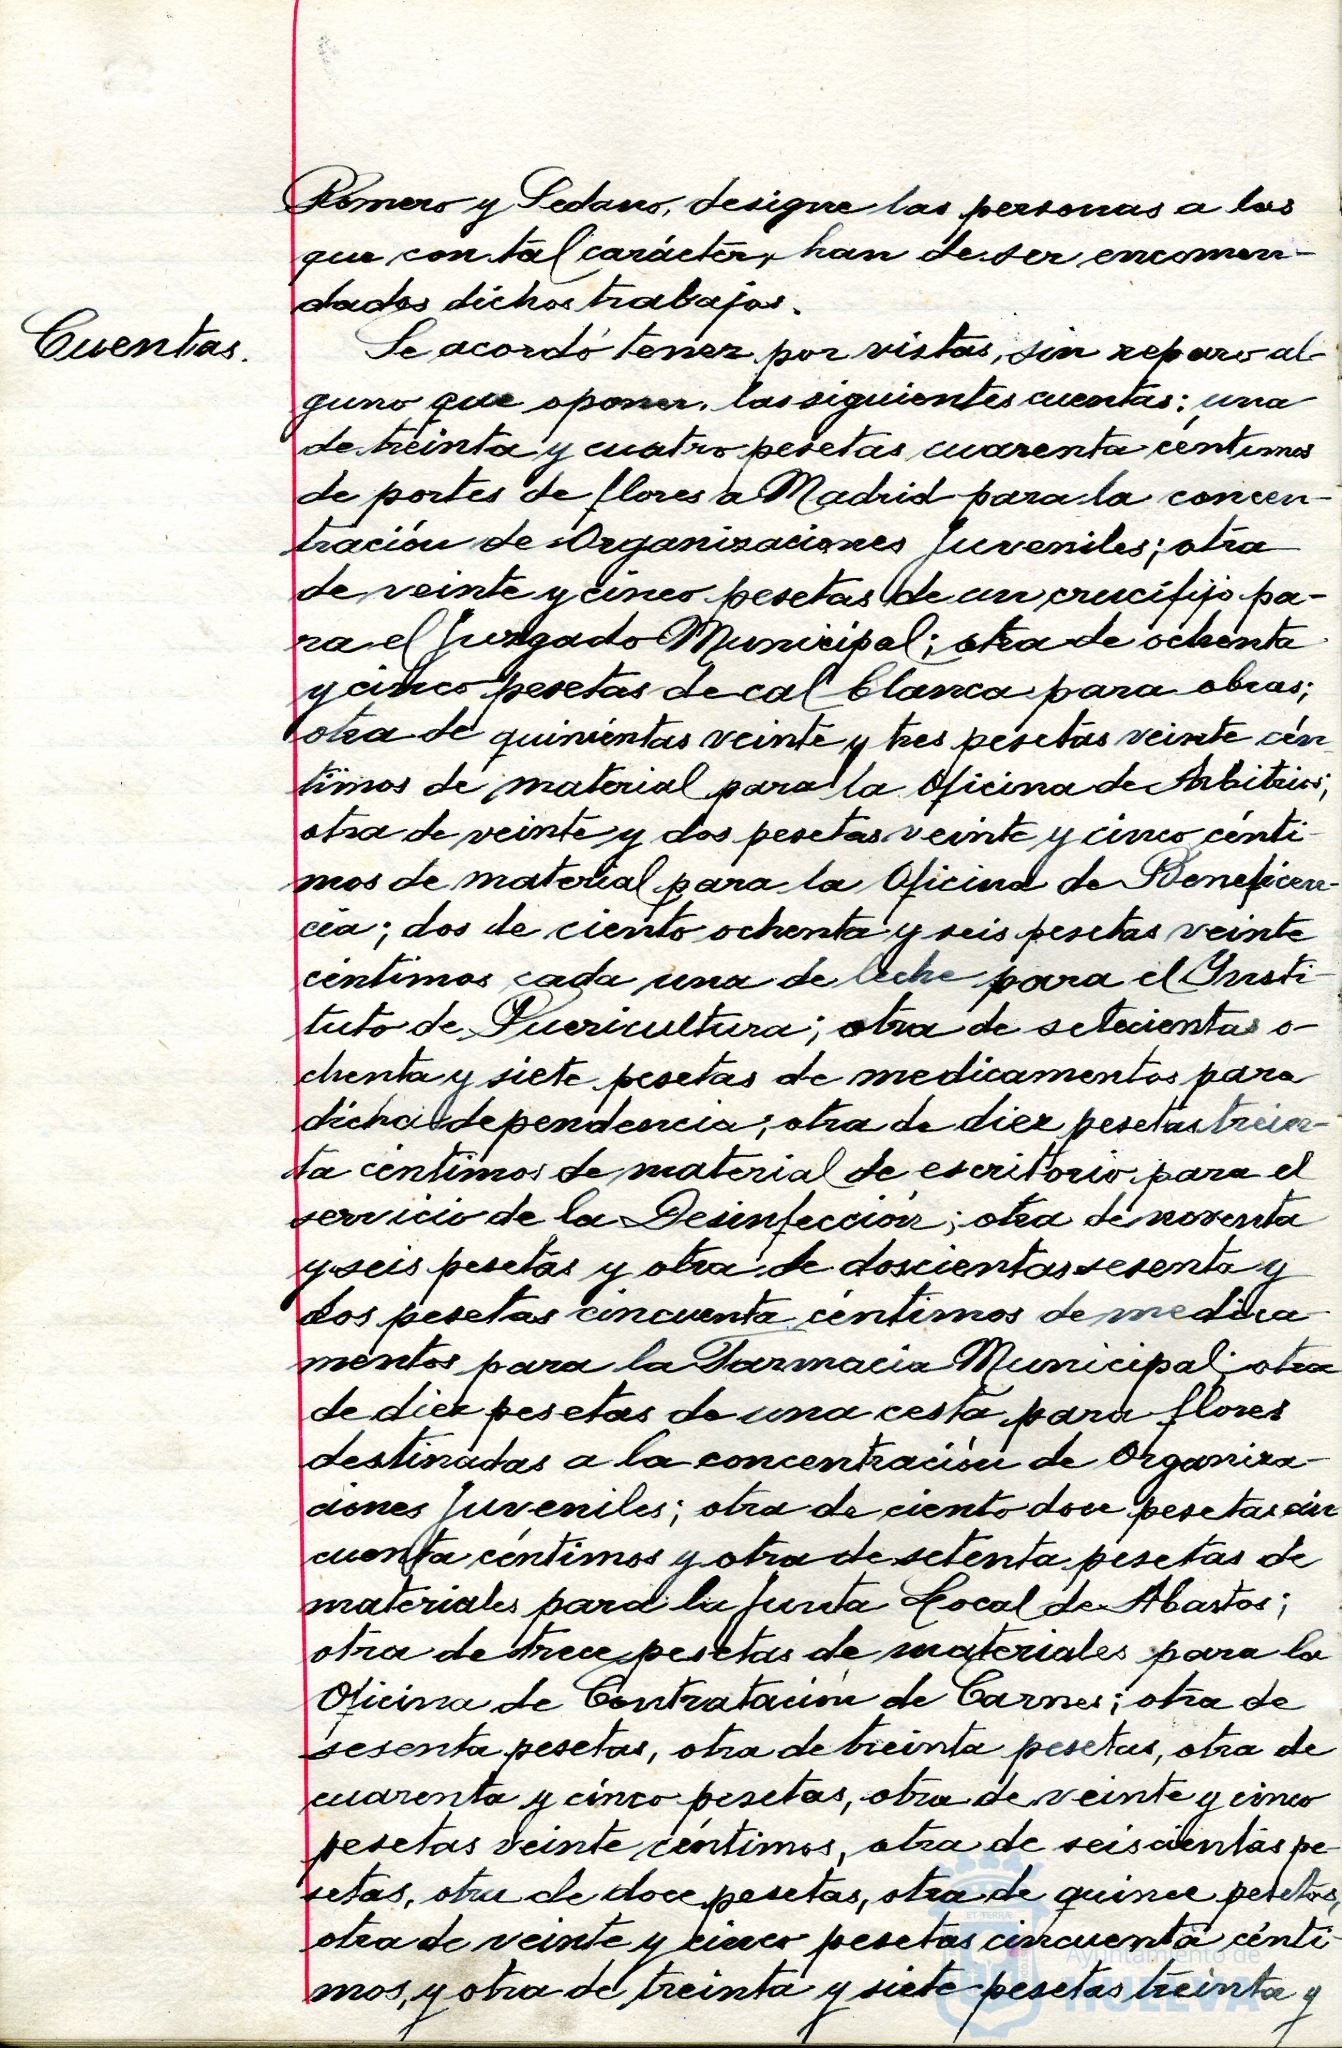 Romero y Sedano, designe las personas a las
que con tal carácter, han de ser encomen-
dados dichos trabajos.
Cuentas.
Se acordó tener por vistas, sin reparo al-
guno que oponer, las siguientes cuentas: una
de treinta y cuatro pesetas cuarenta céntimos
de portes de flores a Madrid para la concen-
tración de Organizaciones Juveniles; otra
de veinte y cinco pesetas de un crucifijo pa-
ra el Juzgado Municipal; otra de ochenta
y cinco pesetas de cal blanca para obras;
otra de quinientas veinte y tres pesetas veinte cén
timos de material para la Oficina de Arbitrios;
otra de veinte y dos pesetas veinte y cinco cénti-
mos de material para la Oficina de Beneficen-
cia; dos de ciento ochenta y seis pesetas veinte
céntimos cada una de leche para el Insti-
tuto de Puericultura; otra de setecientas o-
chenta y siete pesetas de medicamentos para
dicha dependencia; otra de diez pesetas trein-
ta céntimos de material de escritorio para el
servicio de la Desinfección; otra de noventa
y seis pesetas y otra de doscientas sesenta y
dos pesetas cincuenta céntimos de medica-
mentos para la Farmacia Municipal; otra
de diez pesetas de una cesta para flores
destinadas a la concentración de Organiza-
ciones Juveniles; otra de ciento doce pesetas cin
cuenta céntimos y otra de setenta pesetas de
materiales para la Junta Local de Abastos;
otra de trece pesetas de materiales para la
Oficina de Contratación de Carnes; otra de
sesenta pesetas, otra de treinta pesetas, otra de
cuarenta y cinco pesetas, otra de veinte y cinco
pesetas veinte céntimos, otra de seiscientas pe-
setas, otra de doce pesetas, otra de quince pesetas,
otra de veinte y cinco pesetas cincuenta cénti-
mos, y otra de treinta y siete pesetas treinta y
ET TERRÆ
Ayuntamiento de
HUELVA